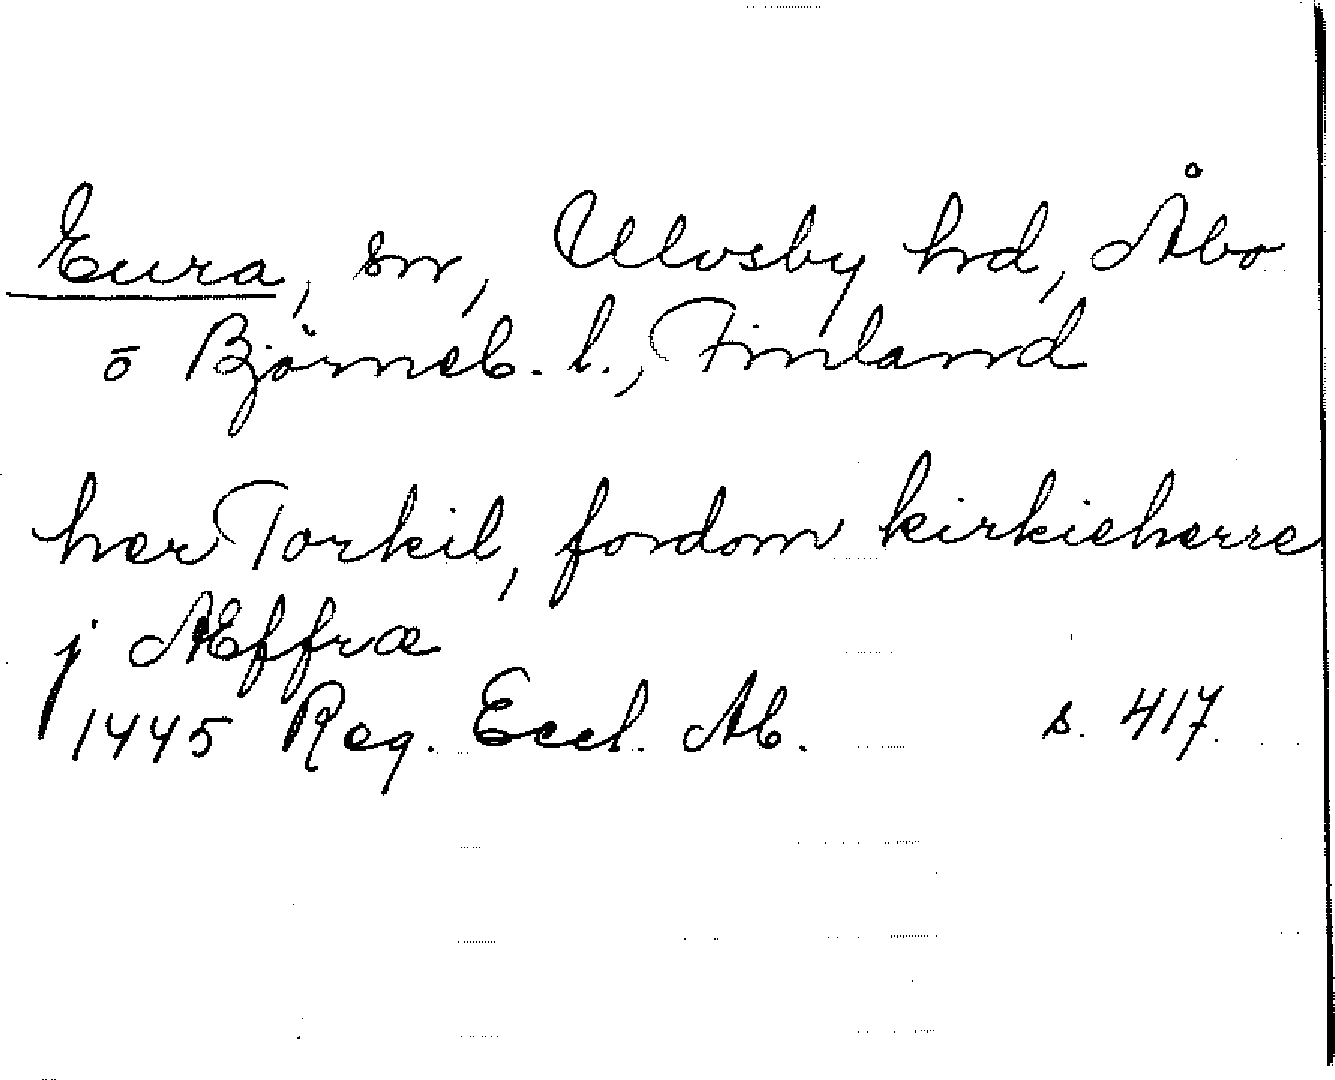 Eura, sn, Ulvsby hd, Åbo
ō Björneb. l., Finland
her Torkil, fordom kirkieherre
j Æffræ
1445 Reg. Eccl. Ab. s. 417